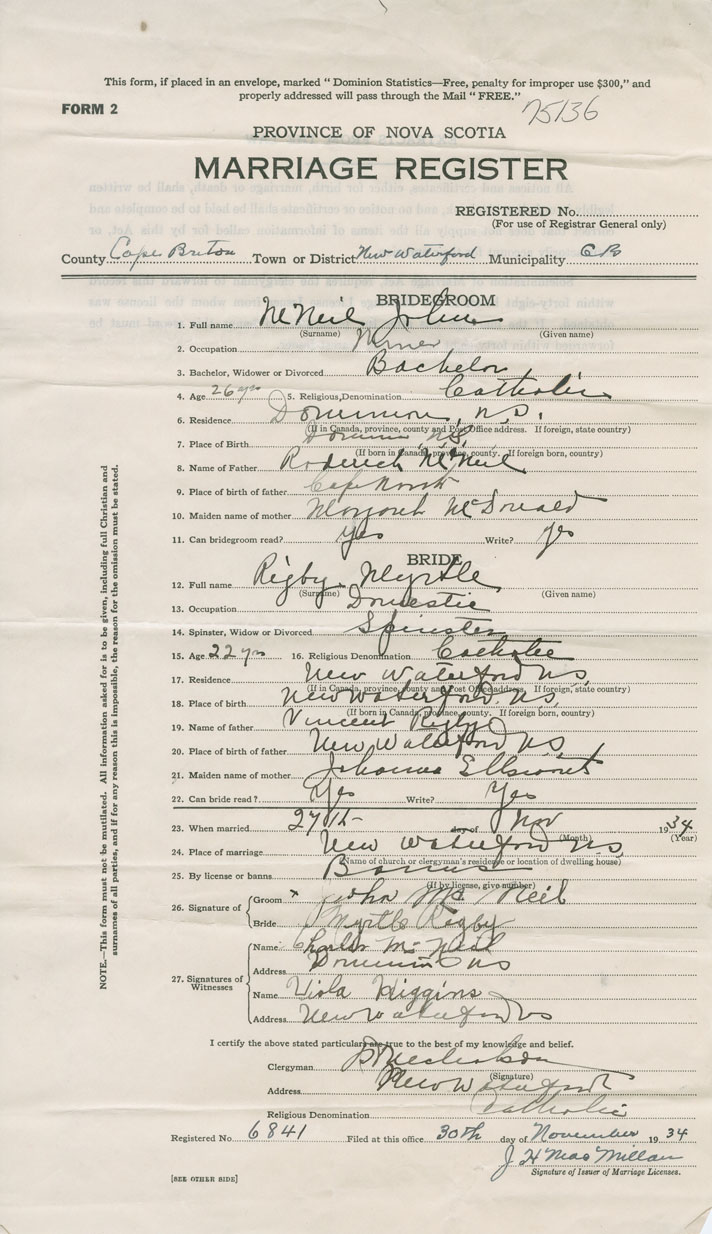 This form, if placed in an envelope, marked " Dominion Statistics—Free, penalty for improper use $300," and
properly addressed will pass through the Mail " FREE."
FORM 2
75136
PROVINCE OF NOVA SCOTIA
MARRIAGE REGISTER
REGISTERED No.
(For use of Registrar General only)
County Cape Breton Town or District New Waterford Municipality C B
BRIDEGROOM
1. Full name McNeil John
(Surname) (Given name)
2. Occupation Miner
3. Bachelor, Widower or Divorced Bachelor
4. Age 26 yrs 5. Religious Denomination Catholic
6. Residence Dominion, N.S.
(If in Canada, province, county and Post Office address. If foreign, state country)
7. Place of Birth Dominion NS
(If born in Canada, province, county. If foreign born, country)
8. Name of Father Roderick McNeil
9. Place of birth of father Cape North
10. Maiden name of mother Margaret McDonald
11. Can bridegroom read? Yes Write? Yes
BRIDE
12. Full name Rigby Myrtle
(Surname) (Given name)
13. Occupation Domestic
14. Spinster, Widow or Divorced Spinster
15. Age 22 yrs 16. Religious Denomination Catholic
17. Residence New Waterford N.S.
(If in Canada, province, county and Post Office address. If foreign, state country)
18. Place of birth New Waterford N.S,
(If born in Canada, province, county. If foreign born, country)
19. Name of father Vincent Rigby
20. Place of birth of father New Waterford N.S,
21. Maiden name of mother Johanna
22. Can bride read? Yes Write? Yes
23. When married 27th day of Nov 1934
(Month) (Year)
24. Place of marriage New Waterford N.S,
(Name of church or clergyman's residence or location of dwelling house)
25. By license or banns Banns
(If by license, give number)
26. Signature of Groom x John Mc Neil
Bride Myrtle Rigby
27. Signatures of Witnesses Name Charles Mc Neil
Address Dominion NS
Name Viola Higgins
Address New Waterford NS
I certify the above stated particulars are true to the best of my knowledge and belief.
Clergyman
(Signature)
Address New Waterford
Religious Denomination Catholic
Registered No. 6841 Filed at this office 30th day of November 1934
J H MacMillan
Signature of Issuer of Marriage Licenses.
[SEE OTHER SIDE]
NOTE.—This form must not be mutilated. All information asked for is to be given, including full Christian and
surnames of all parties, and if for any reason this is impossible, the reason for the omission must be stated.